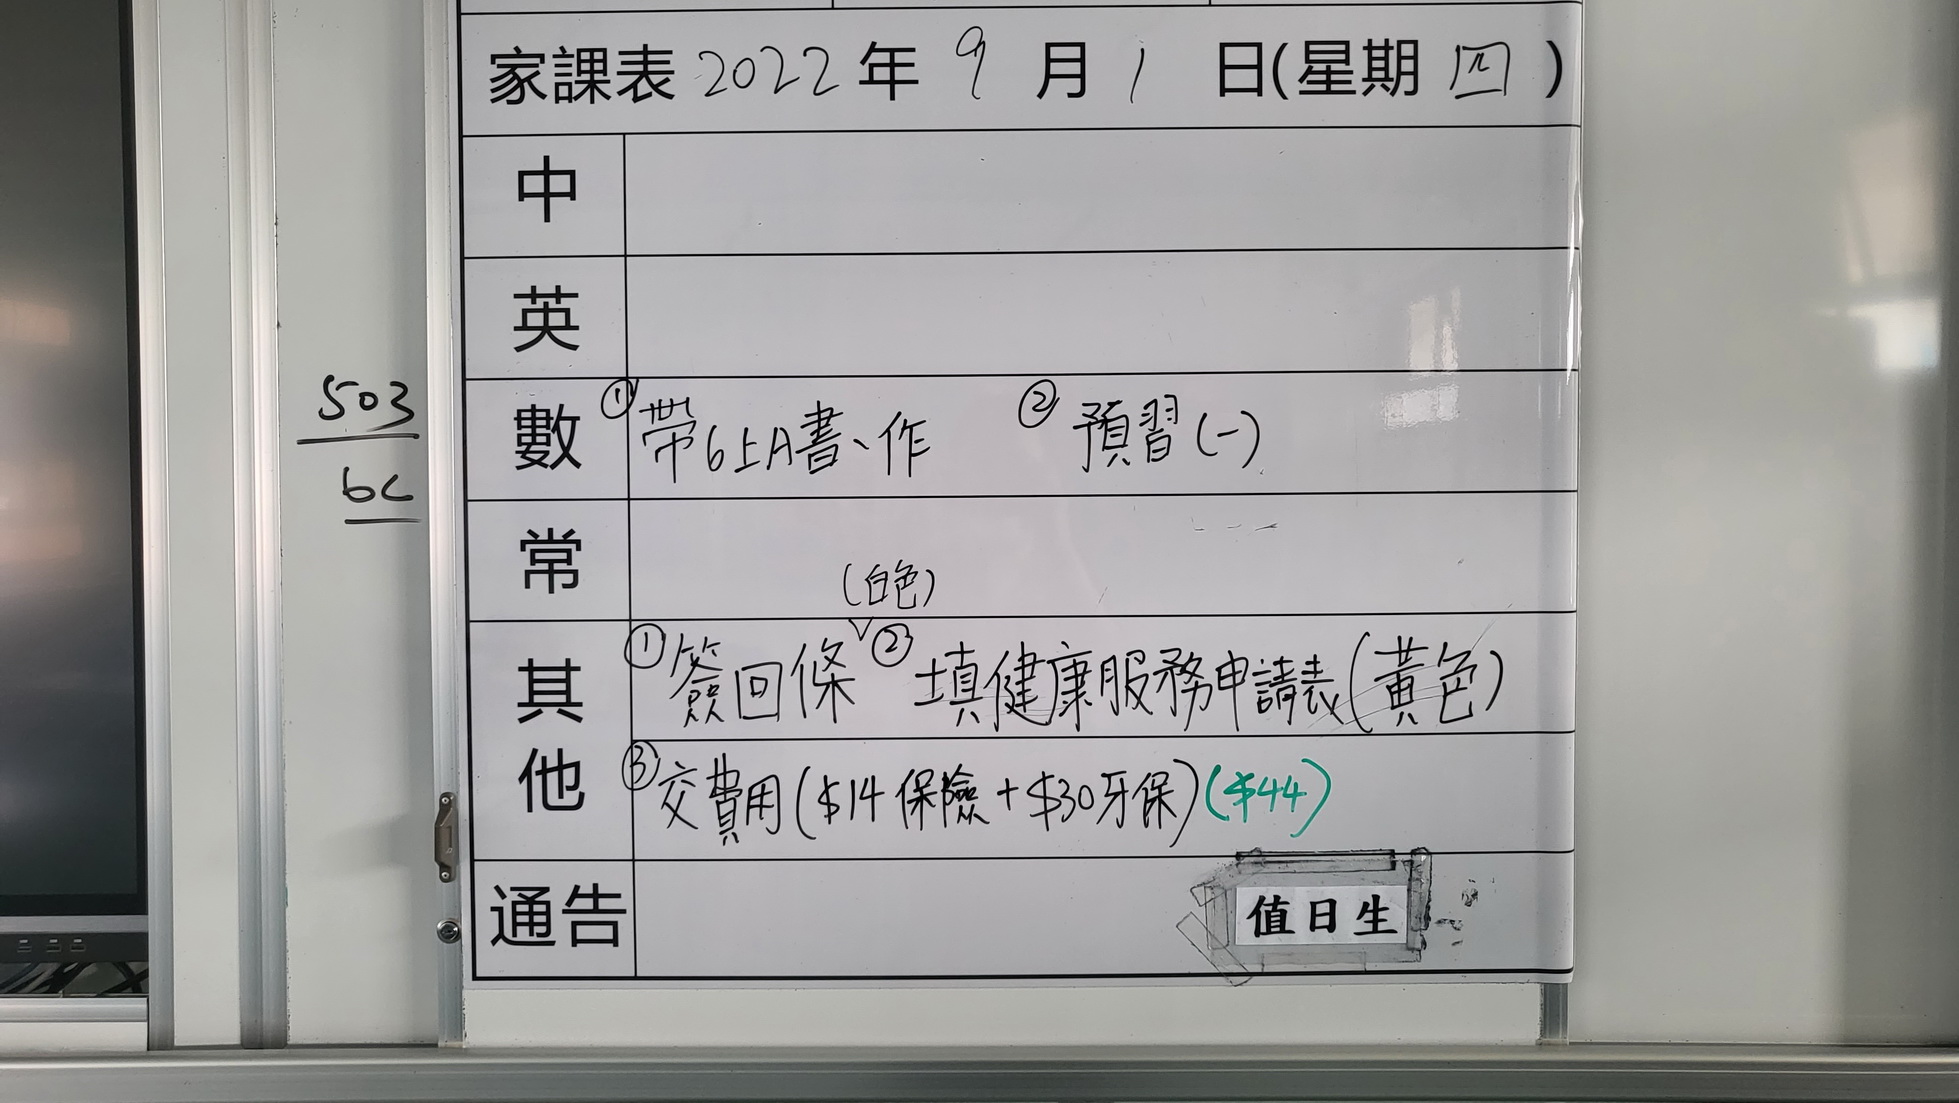 家課表 2022 年 9 月 1 日(星期 四 )
中
英
503
6C
數 ①帶6上A書、作 ②預習(一)
常
(白色)
其他 ①簽回條 ②填健康服務申請表(黃色)
③交費用($14保險+$30牙保)($44)
通告
值日生